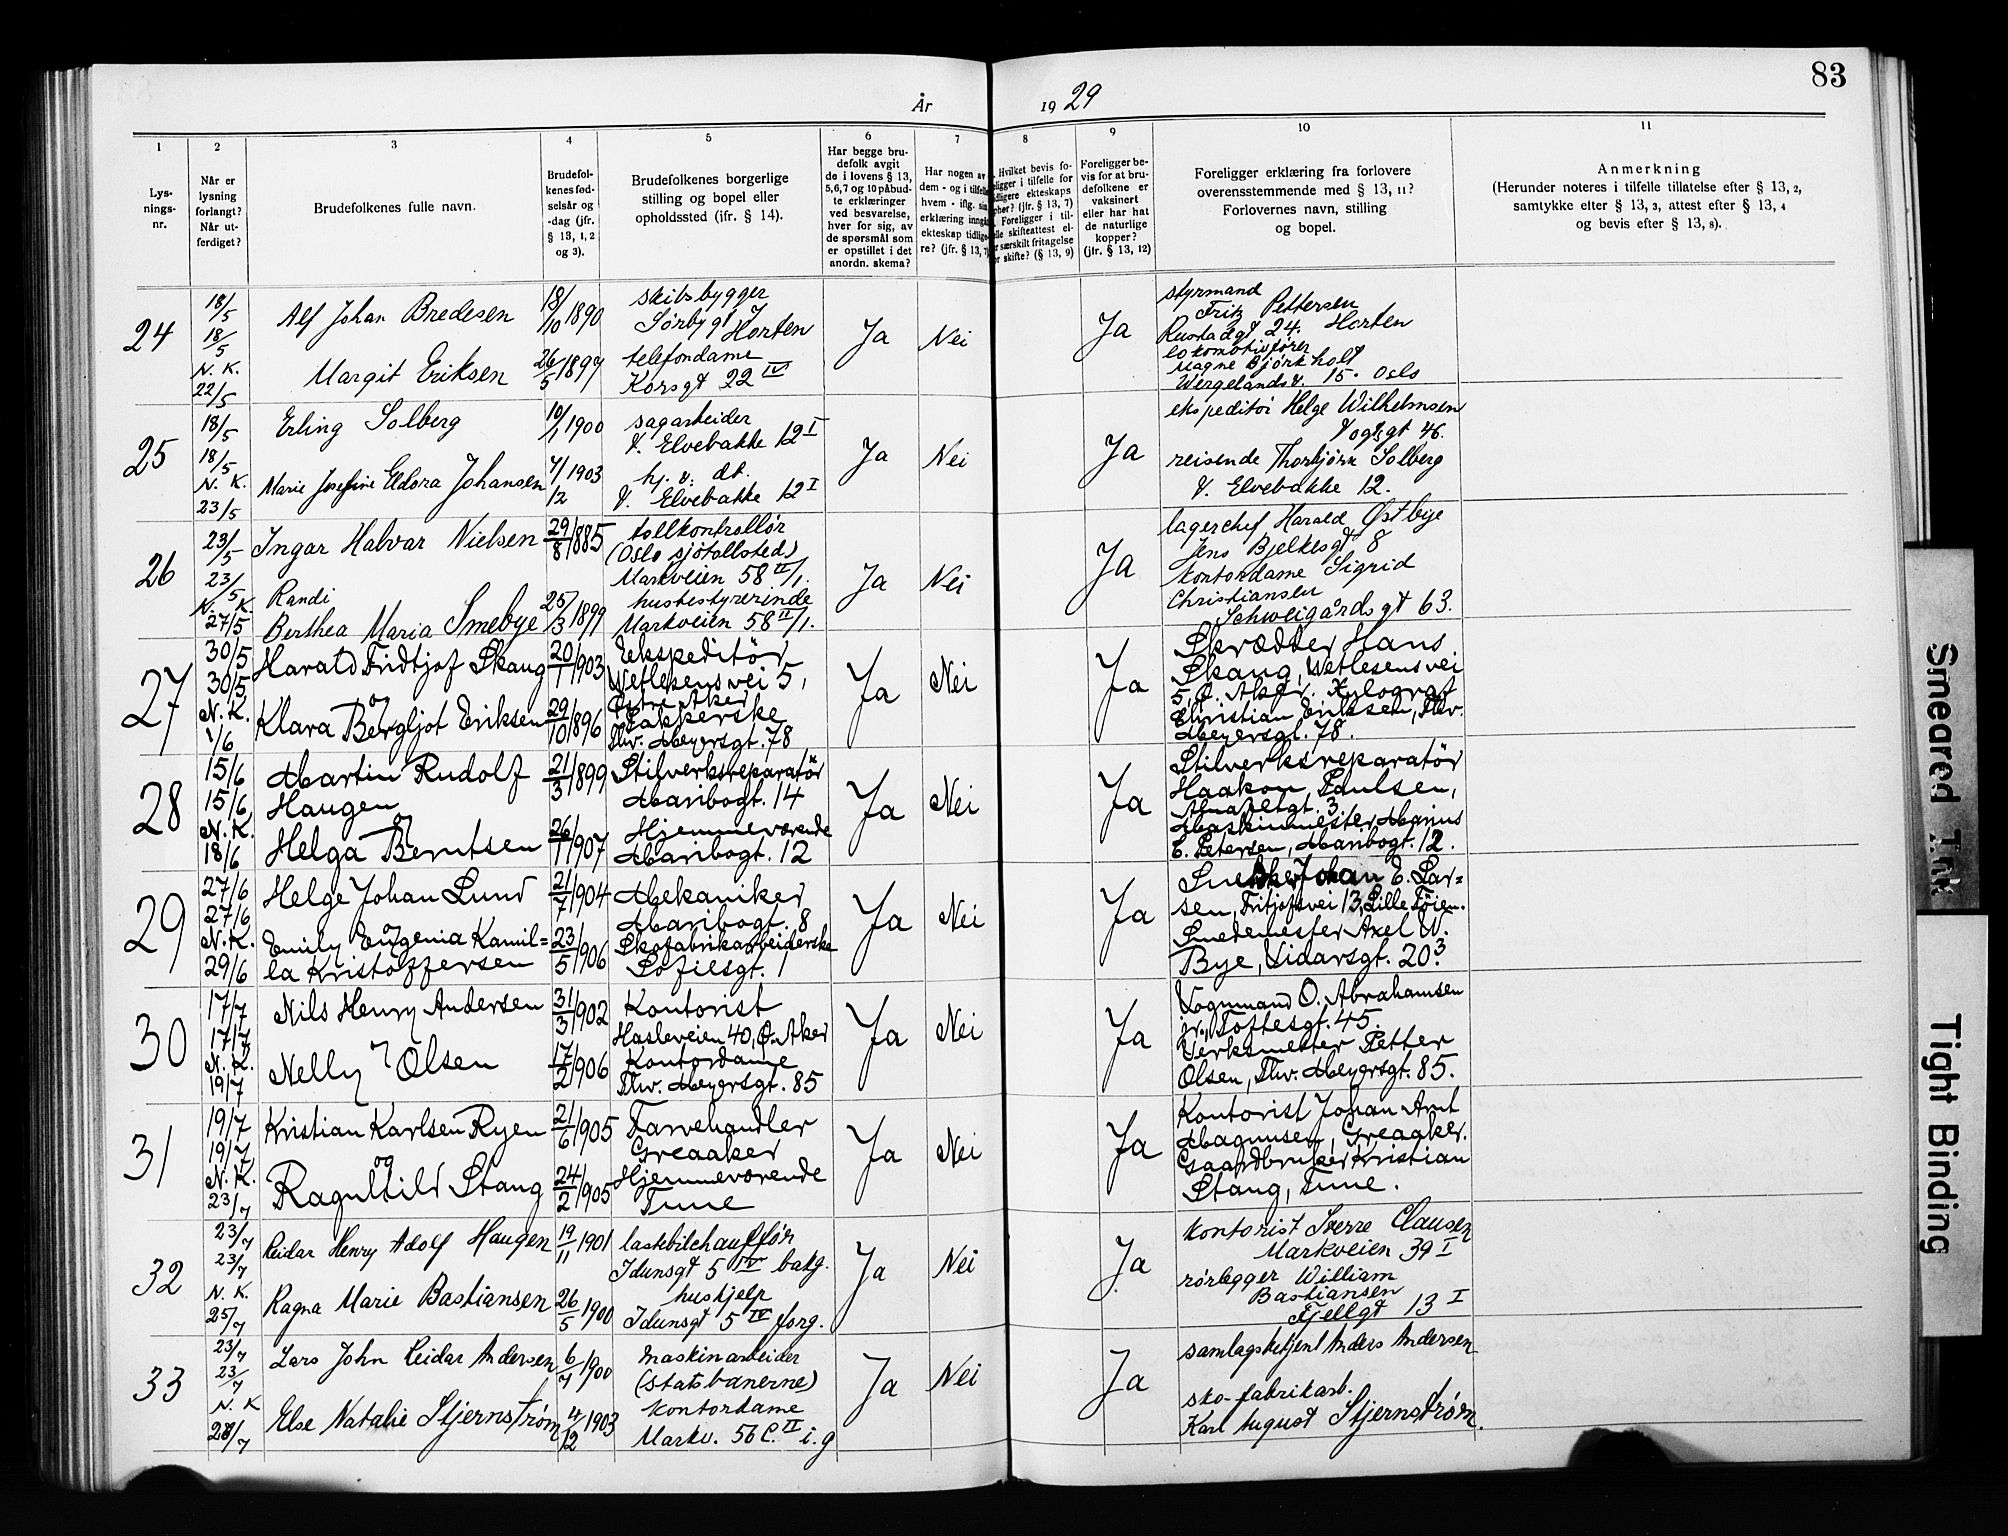 83
År 1929
1
2
3
4
5
6
7
8
9
10
11
Lys-
nings-
nr.
Når er
lysning
forlangt?
Når ut-
ferdiget?
Brudefolkenes fulle navn.
Brudefol-
kenes fød-
selsår og
-dag (jfr.
§ 13, 1, 2
og 3).
Brudefolkenes borgerlige
stilling og bopel eller
opholdssted (jfr. § 14).
Har begge bru-
defolk avgit
de i lovens § 13,
5,6,7 og 10 påbud-
te erklæringer
ved besvarelse,
hver for sig, av
de spørsmål som
er opstillet i det
anordn. skema?
Har nogen av
dem - og i tilfelle
hvem - iflg. sin
erklæring inngått
ekteskap tidlige-
re? (jfr. § 13, 7)
Hvilket bevis fo-
religger i tilfelle for
tidligere ekteskaps
ophør? (jfr. § 13, 7)
Foreligger i til-
felle skifteattest el-
ler særskilt fritagelse
for skifte? (§ 13, 9)
Foreligger be-
vis for at bru-
defolkene er
vaksinert
eller har hat
de naturlige
kopper?
(jfr. § 13, 12)
Foreligger erklæring fra forlovere
overensstemmende med § 13, 11?
Forlovernes navn, stilling
og bopel.
Anmerkning
(Herunder noteres i tilfelle tillatelse efter § 13, 2,
samtykke efter § 13, 3, attest efter § 13, 4
og bevis efter § 13, 8).
24
18/5
18/5
N. K.
22/5
Alf Johan Bredesen
18/10 1890
skibsbygger
Sørbygt Horten
Margit Eriksen
26/5 1897
telefondame
Korsgt 22 IV
Ja
Nei
Ja
styrmand
Fritz Pettersen
Rustadgt 24. Horten
lokomotivfører
Magne Bjørkholt
Wergelandsv. 15. Oslo
25
18/5
18/5
N. K.
23/5
Erling Solberg
10/1 1900
sagarbeider
V. Elvebakke 12 I
Marie Josefine Eldora Johansen
7/12 1903
hj. v. dt.
V. Elvebakke 12 I
Ja
Nei
Ja
ekspeditør Helge Wilhelmsen
Vogtsgt 46.
reisende Thorbjørn Solberg
V. Elvebakke 12.
26
23/5
23/5
N. K.
27/5
Ingar Halvar Nielsen
29/8 1885
tollkontrollør
(Oslo sjøtollsted)
Markveien 58 II/1.
Randi
Berthea Maria Smebye
25/3 1899
husbestyrerinde
Markveien 58 II/1.
Ja
Nei
Ja
lagerchef Harald Østbye
Jens Bjelkesgt 8
kontordame Sigrid
Christiansen
Schweigårdsgt 63.
27
30/5
30/5
N. K.
1/6
Harald Fridtjof Skaug
20/1 1903
Ekspeditör
Vetlesens vei 5,
Østre Aker
og
Klara Bergljot Eriksen
29/10 1896
Pakkerske
Thv. Meyersgt. 78
Ja
Nei
Ja
Skrædder Hans
Skaug, Vetlesens vei
5, Ø. Aker. Xylograf
Christian Eriksen, Thv.
Meyersgt. 78.
28
15/6
15/6
N. K.
18/6
Martin Rudolf
Haugen
21/3 1899
Stilverksreparatör
Maribogt. 14
og
Helga Berntsen
26/1 1907
Hjemmeværende
Maribogt. 12
Ja
Nei
Ja
Stilverksreparatör
Haakon Paulsen,
3.
Maskinmester Marius
E. Petersen, Maribogt. 12.
29
27/6
27/6
N. K.
29/6
Helge Johan Lund
21/7 1904
Mekaniker
Maribogt. 8
og
Emily Eugenia Kamil=
la Kristoffersen
23/5 1906
Skofabrikarbeiderske
Sofiesgt. 1
Ja
Nei
Ja
Snekker Johan E. Lar=
sen, Fritjofsvei 13, Lille Tøien.
Smedemester Axel W.
Bye, Vidarsgt. 20³.
30
17/7
17/7
N. K.
19/7
Nils Henry Andersen
31/3 1902
Kontorist
Hasleveien 40, Ø. Aker
og
Nelly Olsen
17/2 1906
Kontordame
Thv. Meyersgt. 85
Ja
Nei
Ja
Vognmand O. Abrahamsen
jr., Toftesgt. 45.
Verksmester Petter
Olsen, Thv. Meyersgt. 85.
31
19/7
19/7
N. K.
23/7
Kristian Karlsen Ryen
21/6 1905
Farvehandler
Greaaker
og
Ragnhild Stang
24/2 1905
Hjemmeværende
Tune
Ja
Nei
Ja
Kontorist Johan Arnt
Magnusen, Greaaker.
Gaardbruker Kristian
Stang, Tune.
32
23/7
23/7
N. K.
25/7
Reidar Henry Adolf Haugen
19/11 1901
lastebilchaufför
Idunsgt 5 IV bakg.
Ragna Marie Bastiansen
26/5 1900
hushjelp
Idunsgt 5 IV forg.
Ja
Nei
Ja
kontorist Sverre Clausen
Markveien 39 I
rørlegger William
Bastiansen
Fjellgt 13 I
33
23/7
23/7
N. K
27/7
Lars John Reidar Andersen
6/7 1900
maskinarbeider
(statsbanerne)
Else Natalie Stjernstrøm
4/12 1903
kontordame
Markv. 56 C. II i. g
Ja
Nei
Ja
samlagsbetjent Anders Andersen
sko-fabrikarb.
Karl August Stjernstrøm.
Smeared Ink
Tight Binding